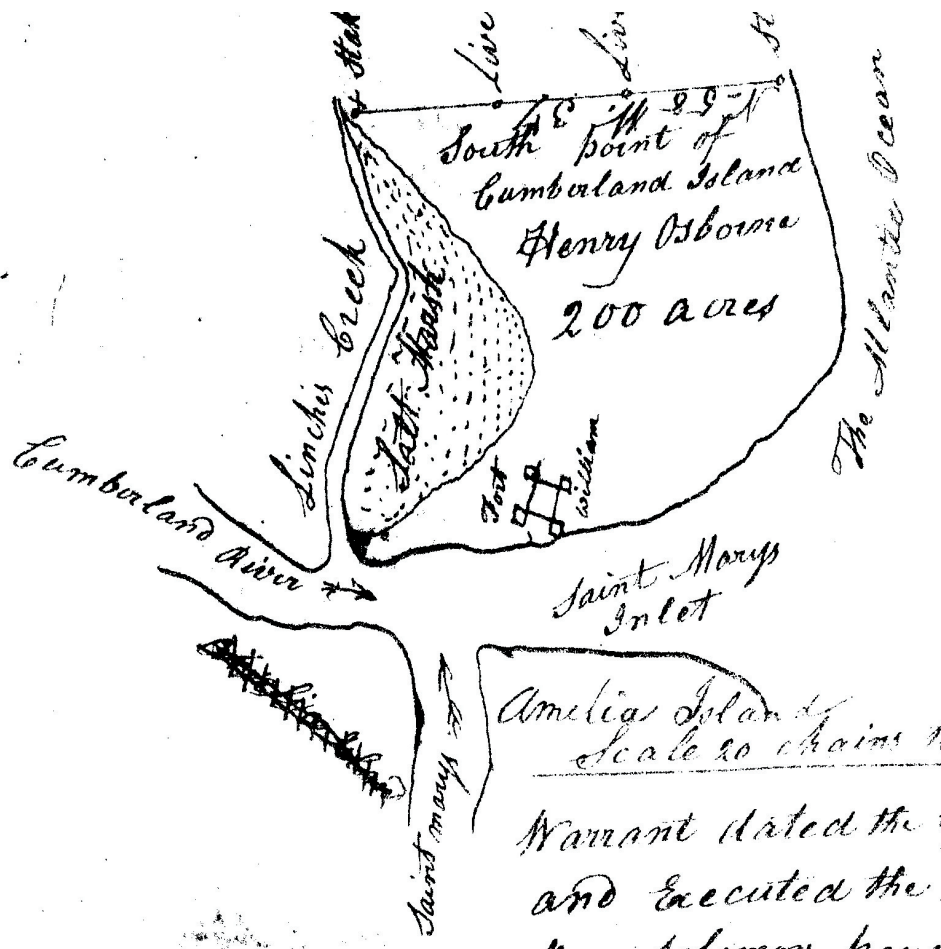 Stak
Live
Liv
St
South point of
Cumberland Island
Henry Osborne
200 acres
The Atlantic Ocean
Linchis Creek
Salt Marsh
Fort
William
Cumberland River
Saint Marys
Inlet
Amelia Island
Scale 20 chains
Saint marys
Warrant dated the
and Executed the